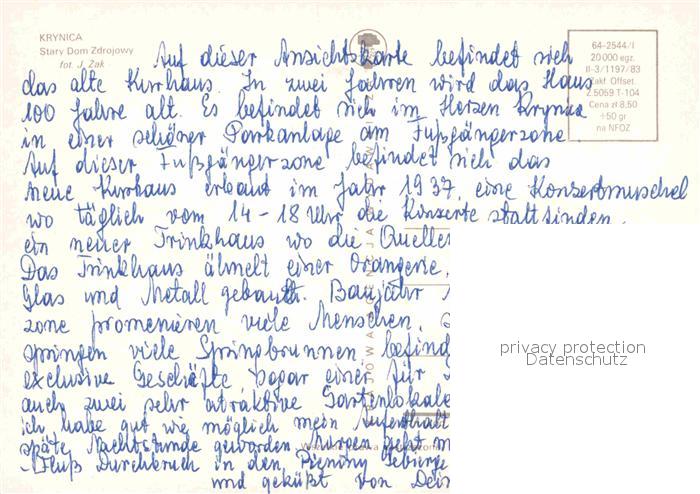 KRYNICA
Stary Dom Zdrojowy
fot. J. Żak
64-2544/I
20 000 egz.
II-3/1197/83
Zakł. Offset.
Z.5059 T-104
Cena zł 8,50
+50 gr
na NFOZ
Auf dieser Ansichtskarte befindet sich
das alte Kurhaus. In zwei Jahren wird das Haus
100 Jahre alt. Es befindet sich im Herzen Krynica
in einer schöner Parkanlage am Fußgängerzone.
Auf dieser Fußgängerzone befindet sich das
neue Kurhaus erbaut im Jahr 1937, eine Konzertmuschel
wo täglich vom 14-18 Uhr die Konzerte stattfinden,
ein neuer Trinkhaus wo die Queller
Das Trinkhaus ähnelt einer Orangerie,
Glas und Metall gebauth. Baujahr
zone promenieren viele Menschen.
springen viele Springbrunnen befind
exclusive Geschäfte sogar einer für
auch zwei sehr atraktive Gartenlokale
ich habe gut wie möglich mein Aufenthalt
späte Nachtstunde geworden. Morgen geht
-Fluß Durchbruch in den Pieniny Gebirge
und geküßt von Dein
privacy protection
Datenschutz